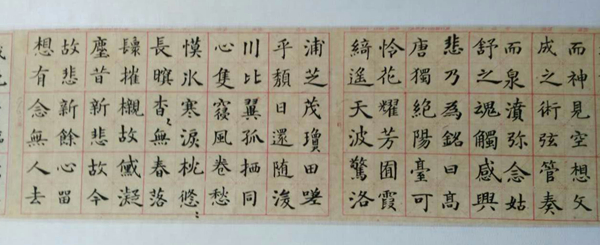 而神見空想文
成之術弦管奏
而泉濆弥念姑
舒之魂觸感興
悲乃為銘曰高
唐獨絕陽臺可
怜花耀芳囿霞
綺遙天波驚洛
浦芝茂瓊田嗟
乎頹日還随浚
川比翼孤栖同
心隻寢風卷愁
幙氷寒淚枕悠〻
長暝杳〻無春落
摧櫬故凝
塵昔新悲故今
故悲新餘心留
想有念無人去